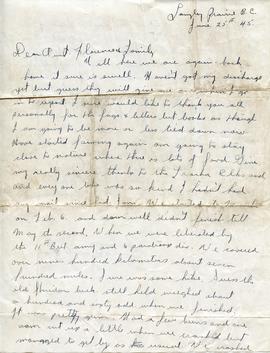 Langley Prairie B.C.
June 25th 45.
Dear Aunt Florence & family
Well here we are again back
home it sure is swell. Haven't got my discharge
yet but guess they will give me one when I go
in to report. I sure would like to thank you all
personally for the fags & letters but looks as though
I am going to be more or less tied down now.
Have started farming again am going to stay
close to nature where there is lots of food. Give
my really sincere thanks to the Elks and
and every one who was so kind if I hadn't had
any
on Feb 6. and down well didn't finish till
May the second. When we were liberated by
the 11th Brit army and 6 paratroop div. We covered
over nine hundred kilometers about seven
hundred miles. I was some hike. Guess the
old still held weighed about
a hundred and sixty odd when we finished.
It was pretty grim. Had a few burns and are
worn out a little when we crashed but
managed to get by as the usual. We crashed